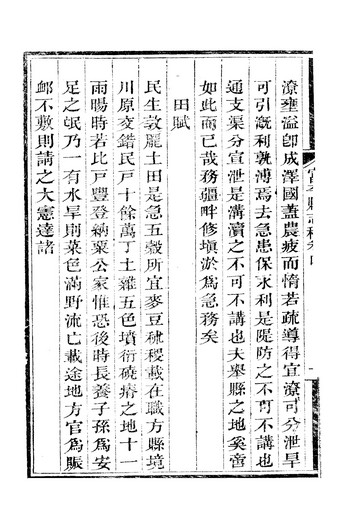 潦壅溢卽成澤國蓋農疲而惰若疏導得宜潦可分泄旱
可引漑利孰溥焉去急患保永利是隄防之不可不講也
通支渠分宣泄是溝瀆之不可不講也夫舉縣之地奚啻
如此而已哉務疆畔修塡淤爲急務矣
田賦
民生敦龐土田是急五穀所宜麥豆秫稷載在職方縣境
川原交錯民戶十餘萬丁土雜五色墳衍磽瘠之地十一
雨暘時若比戶豐登納粟公家惟恐後時長養子孫爲安
足之氓乃一有水旱則菜色滿野流亡載途地方官爲賑
卹不敷則請之大憲達諸